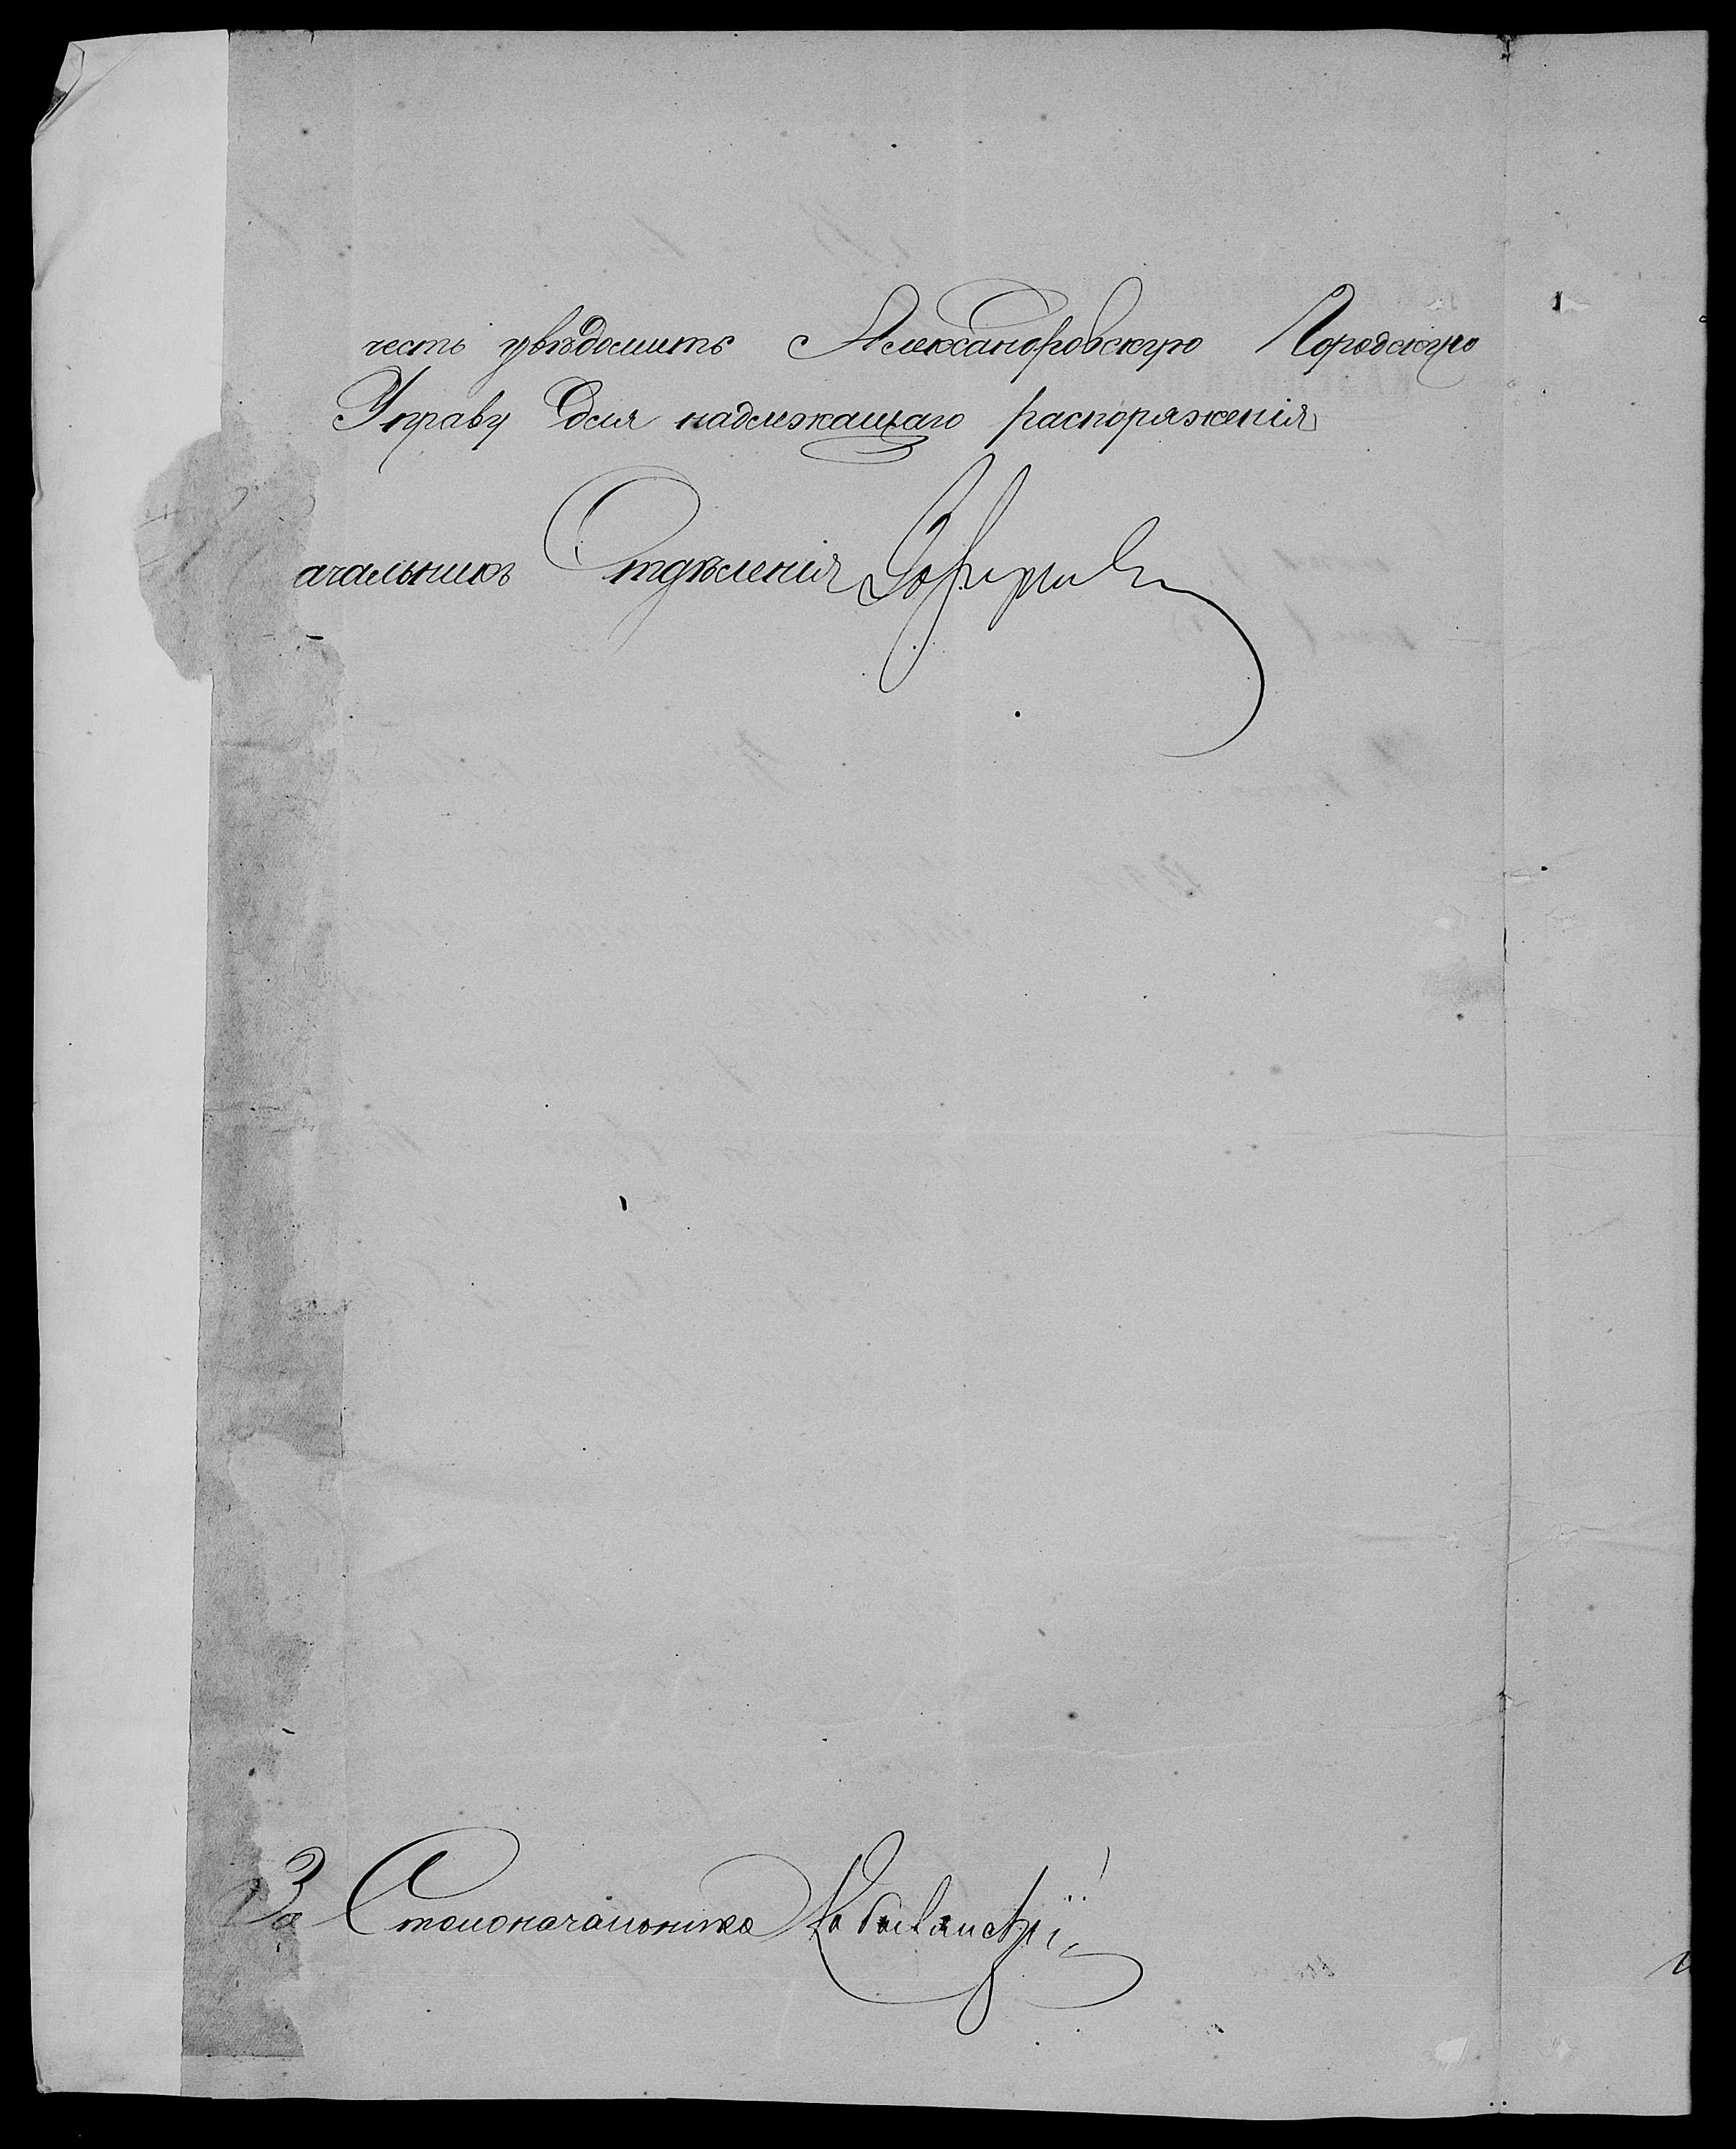 честь увѣдомить Александровскую Городскую
Управу для надлежащаго распоряженія
ачальникъ Отдѣленія
За Столоначальника